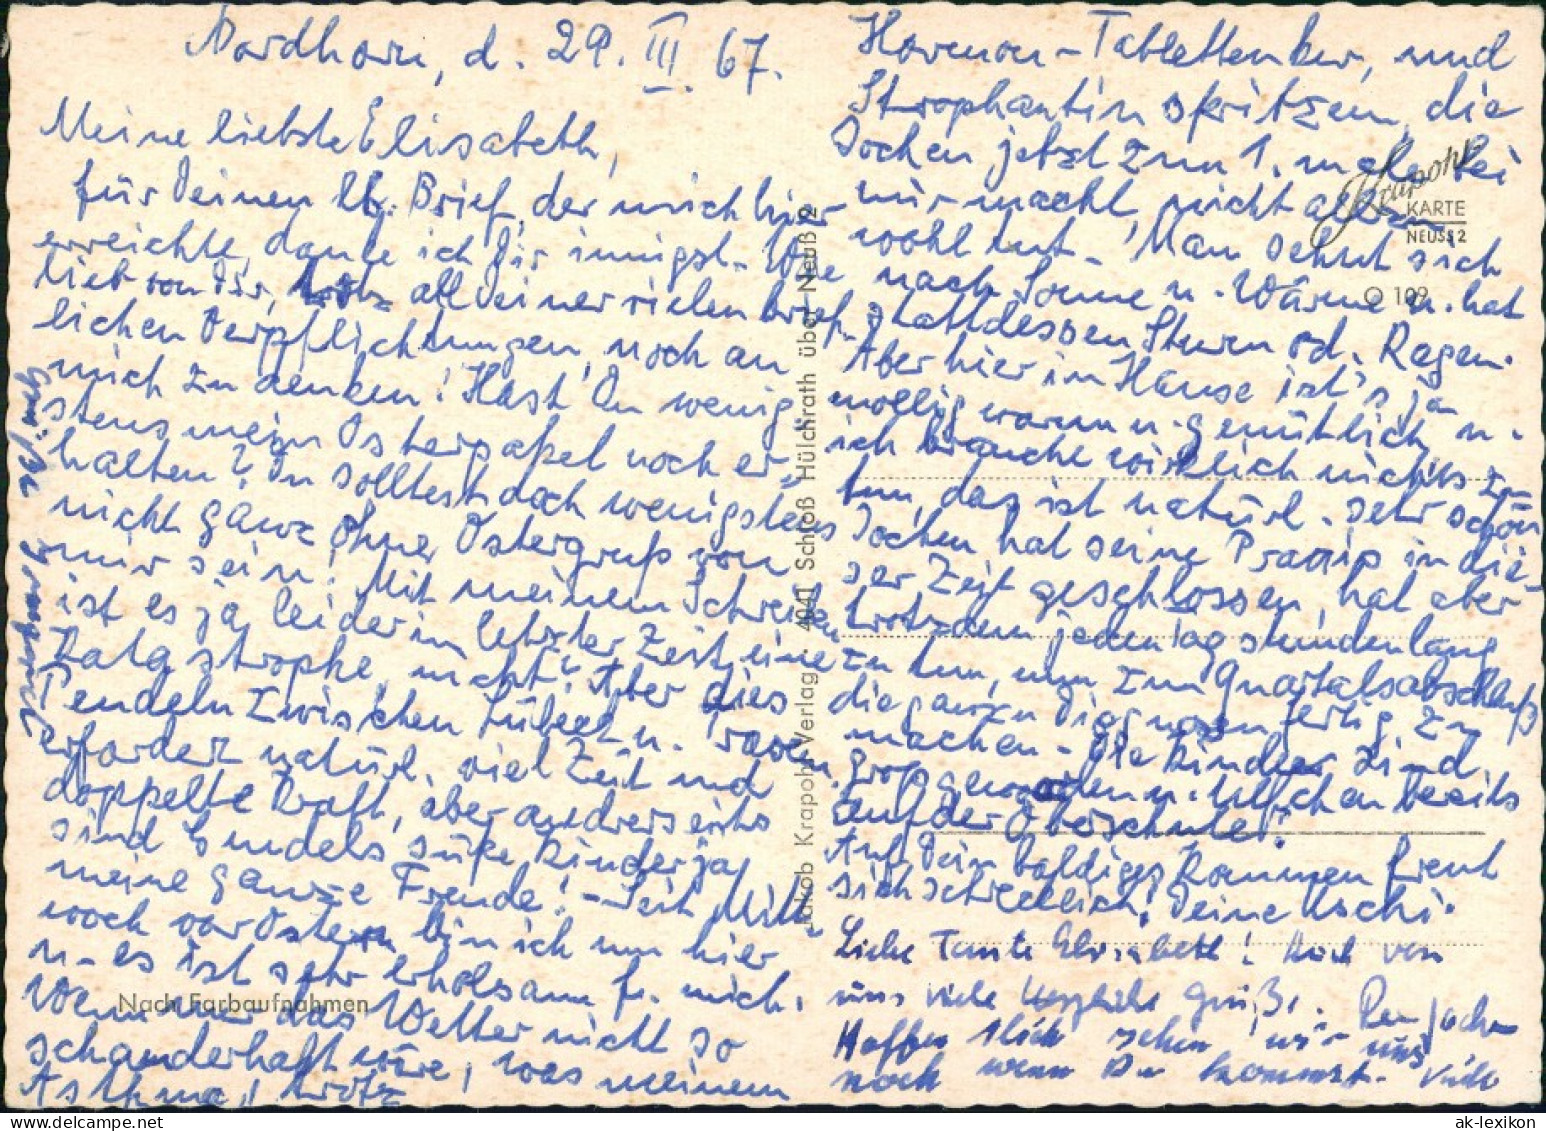 Nordhorn, d. 29. III. 67.
Meine liebste Elisabeth,
für Deinen lb. Brief, der mich hier
erreichte, danke ich Dir innigst. Wie
lieb von Dir, trotz all Deiner vielen brief-
lichen Verpflichtungen, noch an
mich zu denken! Hast Du wenig-
stens mein Osterpaket noch er-
halten? Du solltest doch wenigstens
nicht ganz ohne Ostergruß von
mir sein! Mit meinem Schreiben
ist es ja leider in letzter Zeit eine
Katastrophe, nicht? Aber dies
Pendeln zwischen Lübeck u. Travem.
erfordert natürl. viel Zeit und
doppelte Kraft, aber andrerseits
sind Gundels süße Kinder ja
meine ganze Freude! - Seit Mitt-
woch vor Ostern bin ich nun hier
u. es ist sehr erholsam f. mich.
Nach Farbaufnahmen
Wenn nur das Wetter nicht so
schauderhaft wäre, was meinem
Asthma, trotz
Jakob Krapohl-Verlag · 4041 Schloß Hülchrath über Neuß 2
Tabletten kur, und
Strophantin spritzen, die
Jochen jetzt zum 1. male bei
mir macht, nicht allzu
wohl tut. Man sehnt sich
nach Sonne u. Wärme u. hat
stattdessen Sturm od. Regen.
Aber hier im Hause ist's ja
mollig warm u. gemütlich u.
ich brauche wirklich nichts zu
tun, das ist natürl. sehr schön.
Jochen hat seine Praxis in die-
ser Zeit geschlossen, hat aber
trotzdem jeden Tag stundenlang
zu tun, um zum Quartalsabschluß
die ganzen Diagnosen fertig zu
machen. - Die Kinder sind
groß geworden u. Ulfchen bereits
auf der Oberschule!
Auf Dein baldiges Kommen freut
sich schrecklich, Deine Uschi.
Liebe Tante Elisabeth! Auch von
uns viele herzliche Grüße.
Hoffentlich sehen wir uns
noch wenn Du kommst. Viele
Dein Jochen
Krapohl
KARTE
NEUSS 2
O 109